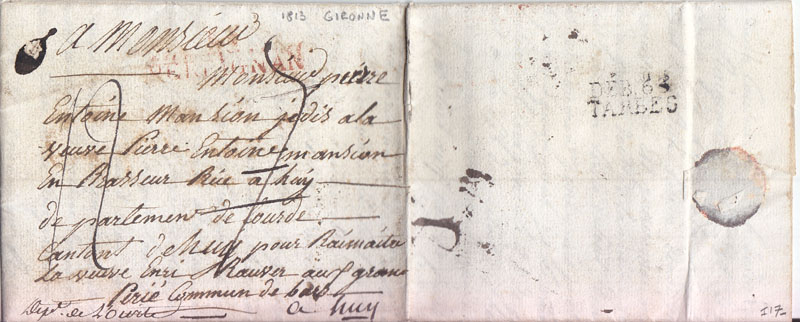 1813 GIRONNE
a Monsieur
PERPIGNAN
Monsieur pierre
Entoine Mansion jedis a la
veuve Pierre Entoine mansion
En Brasseur Rüe a huy
de partement de lourde
Cantont de huy pour Remaitre
La veuve Enri Rauver au grand
Perié Commun de bas
Dept. de L'ourte a huy
DEB. 65
TARBES
117